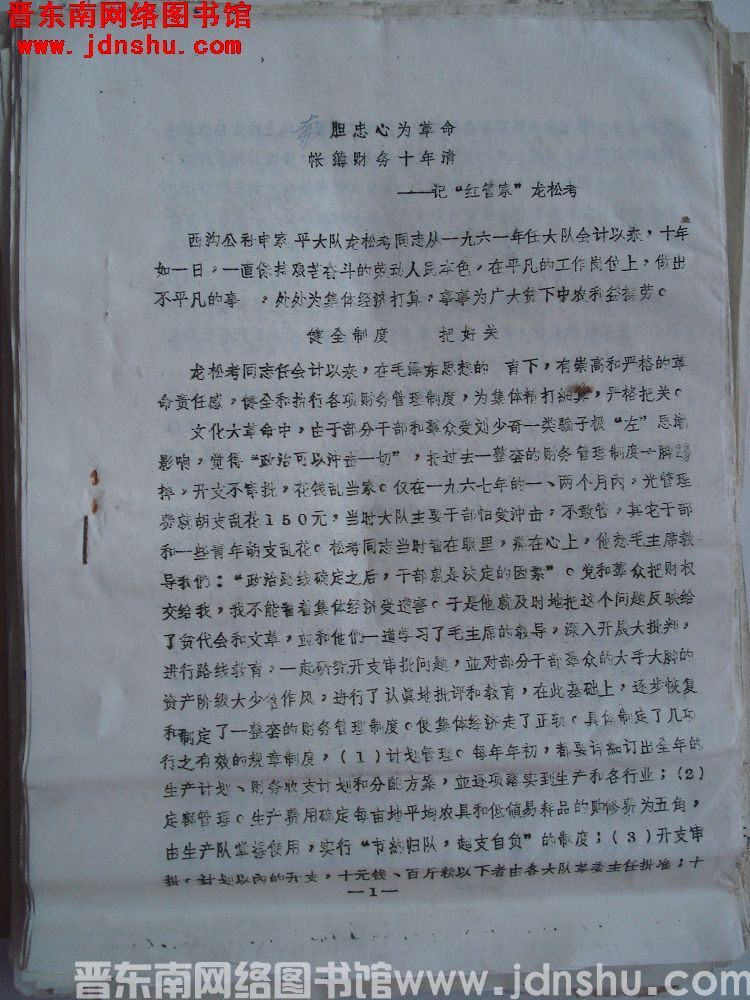 晋东南网络图书馆
www.jdnshu.com
胆忠心为革命
帐簿财务十年清
——记“红管家”龙松考
西沟公社申家平大队龙松考同志从一九六一年任大队会计以来，十年
如一日，一直保持艰苦奋斗的劳动人民本色，在平凡的工作岗位上，做出
不平凡的事　，处处为集体经济打算，事事为广大贫下中农利益操劳。
健全制度　把好关
龙松考同志任会计以来，在毛泽东思想的　育下，有崇高和严格的革
命责任感。健全和执行各项财务管理制度，为集体精打细算，严格把关。
文化大革命中，由于部分干部和羣众受刘少奇一类骗子极“左”思潮
影响，觉得“政治可以冲击一切”，把过去一整套的财务管理制度一脚踢
掉，开支不审批，花钱乱当家。仅在一九六七年的一、两个月内，光管理
费就胡支乱花150元，当时大队主要干部怕受冲击，不敢管，其它干部
和一些青年胡支乱花。松考同志当时看在眼里，痛在心上，他想毛主席教
导我们：“政治路线确定之后，干部就是决定的因素”。党和羣众把财权
交给我，我不能看着集体经济受遭害。于是他就及时地把这个问题反映给
了贫代会和文革，並和他们一道学习了毛主席的教导，深入开展大批判，
进行路线教育，一起研究开支审批问题，並对部分干部羣众的大手大脚的
资产阶级大少爷作风，进行了认真地批评和教育，在此基础上，逐步恢复
和制定了一整套的财务管理制度。使集体经济走了正轨。具体制定了几项
行之有效的规章制度，(1)计划管理。每年年初，都要详细订出全年的
生产计划、财务收支计划和分配方案，並逐项落实到生产和各行业；(2)
定额管理。生产费用确定每亩地平均农具和低值易耗品的购修费为五角，
由生产队掌握使用，实行“节约归队，超支自负”的制度；(3)开支审
批。计划以内的开支，十元钱、百斤粮以下者由各大队革委主任批准；十
—1—
晋东南网络图书馆www.jdnshu.com